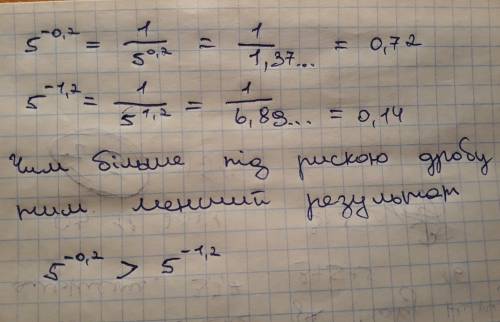 5^-0,2 = 1/5^0,2 = 1/1,37... = 0,72
5^-1,2 = 1/5^1,2 = 1/6,89... = 0,14
Чим більше під рискою дробу
тим менший результат
5^-0,2 > 5^-1,2